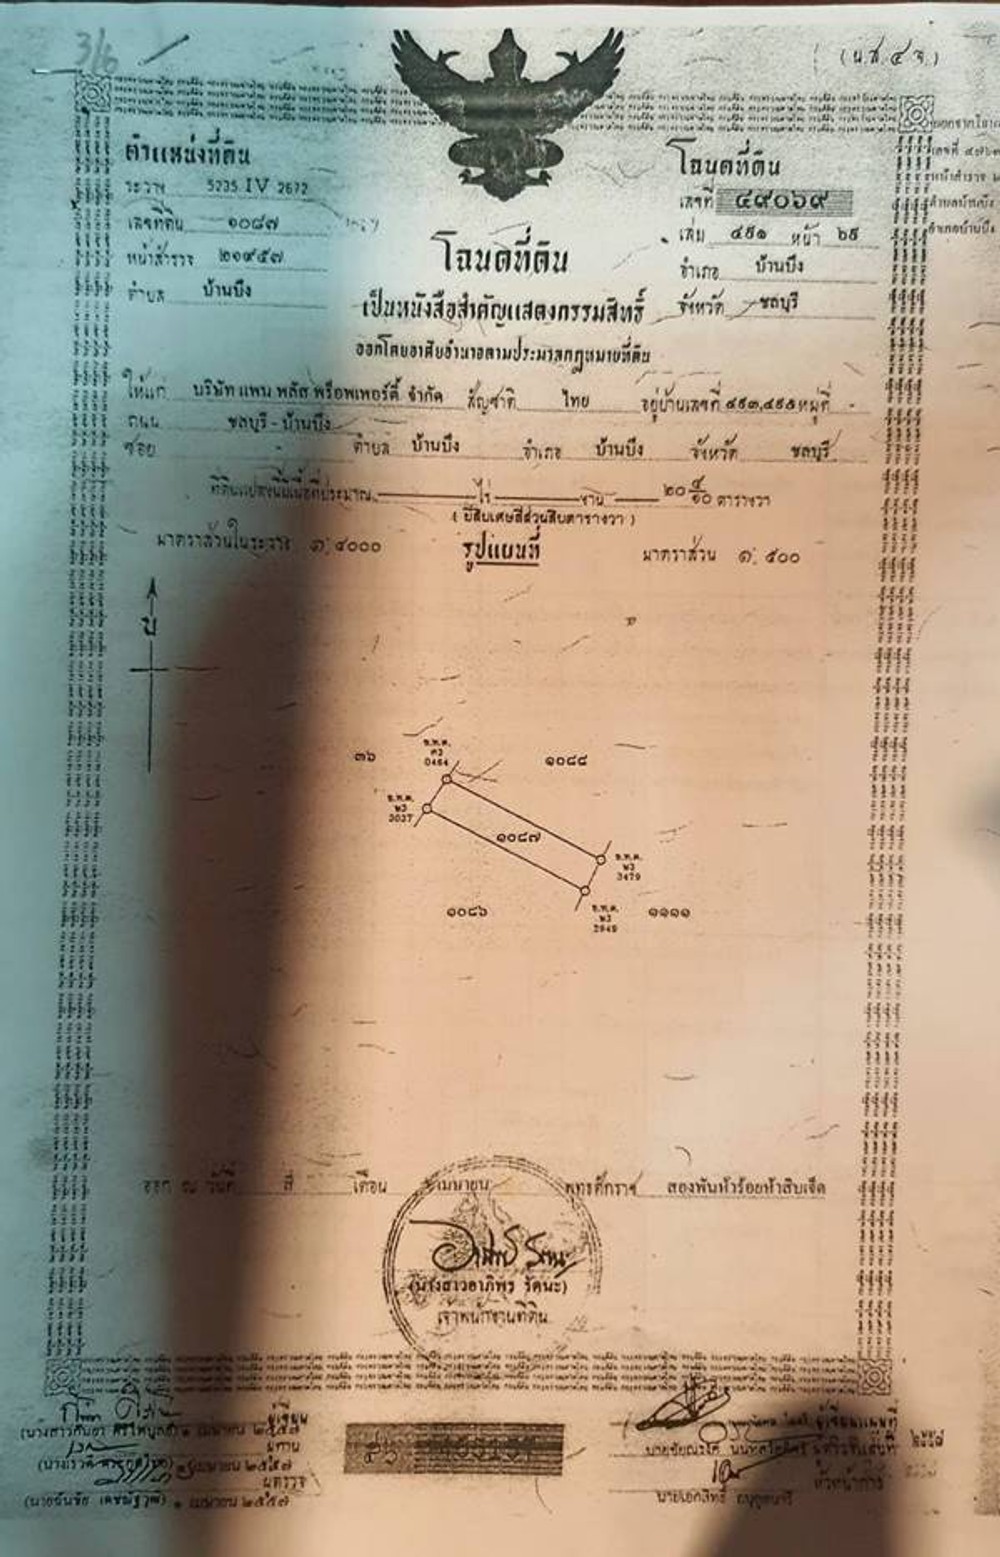 (น.ส. ๔ จ)
ตำแหน่งที่ดิน
ระวาง 5235 IV 2672
เลขที่ดิน ๑๐๘๗
หน้าสำรวจ ๒๑๙๕๗
ตำบล บ้านบึง
โฉนดที่ดิน
เลขที่ ๔๙๐๖๙
เล่ม ๔๙๑ หน้า ๖๙
อำเภอ บ้านบึง
จังหวัด ชลบุรี
โฉนดที่ดิน
เป็นหนังสือสำคัญแสดงกรรมสิทธิ์
ออกโดยอาศัยอำนาจตามประมวลกฎหมายที่ดิน
ให้แก่ บริษัท แพน พลัส พร็อพเพอร์ตี้ จำกัด สัญชาติ ไทย อยู่บ้านเลขที่ ๔๙๓,๔๙๕ หมู่ที่ -
ถนน ชลบุรี - บ้านบึง
ซอย - ตำบล บ้านบึง อำเภอ บ้านบึง จังหวัด ชลบุรี
ที่ดินแปลงนี้มีเนื้อที่ประมาณ ไร่ งาน ๒๐ ๙/๑๐ ตารางวา
(ยี่สิบเศษสี่ส่วนสิบตารางวา)
มาตราส่วนในระวาง ๑:๔๐๐๐ รูปแผนที่ มาตราส่วน ๑:๕๐๐
น
๓๖
0464
๑๐๘๘
3037
๑๐๘๗
3479
๑๐๘๖
๑๑๑๑
2849
ออก ณ วันที่ สี่ เดือน เมษายน พุทธศักราช สองพันห้าร้อยห้าสิบเจ็ด
(นางสาวอาภิพร รัตนะ)
เจ้าพนักงานที่ดิน
ผู้เขียน
๑ เมษายน ๒๕๕๗
ผู้ทาน
เมษายน ๒๕๕๗
ผู้ตรวจ
๑ เมษายน ๒๕๕๗
ผู้เขียนแผนที่
หัวหน้าการ